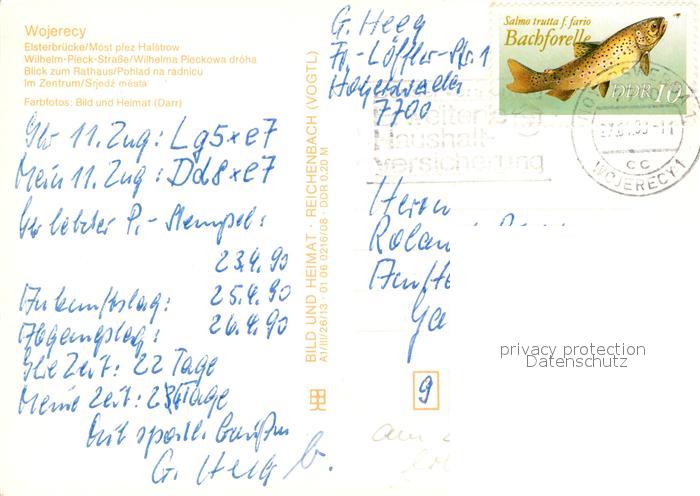 Wojerecy
Elsterbrücke/Móst přez Halštrow
Wilhelm-Pieck-Straße/Wilhelma Pieckowa dróha
Blick zum Rathaus/Pohlad na radnicu
Im Zentrum/Srjedź města
Farbfotos: Bild und Heimat (Darr)
Ihr 11. Zug: Lg5xe7
Mein 11. Zug: Dd8xe7
Ihr letzter P.-Stempel:
23.4.90
Ankunftstag: 25.4.90
Abgangstag: 26.4.90
Ihre Zeit: 22 Tage
Meine Zeit: Tage
Mit sportl. Grüßen
G. Heeg
BILD UND HEIMAT · REICHENBACH (VOGTL)
A1/III/26/13 · 01 06 0216/08 · DDR 0,20 M
G. Heeg
Fr.-Löffler-Str. 1
Hoyerswerda
7700
Salmo trutta f. fario
Bachforelle
DDR 10
Haushalt-
versicherung
-11
cc
WOJERECY 1
Herrn
9
privacy protection
Datenschutz